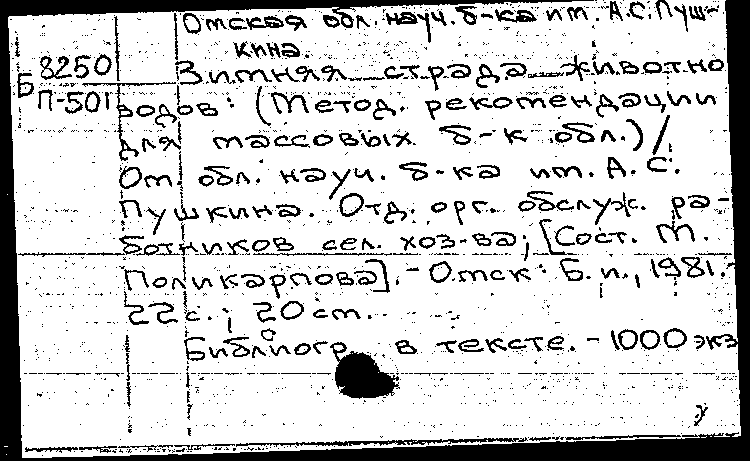 Омская обл. науч. б-ка им. А.С.Пуш-
кина.
Б 8250
П-501
Зимняя страда животно
водов: (Метод. рекомендации
для массовых б-к обл.)/
Ом. обл. науч. б-ка им. А.С.
Пушкина. Отд. орг. обслуж. ра-
ботников сел. хоз-ва; [Сост. М.
Поликарпова].-Омск: Б.и., 1981.-
22с.; 20 cm.
Библиогр. в тексте. - 1000 экз